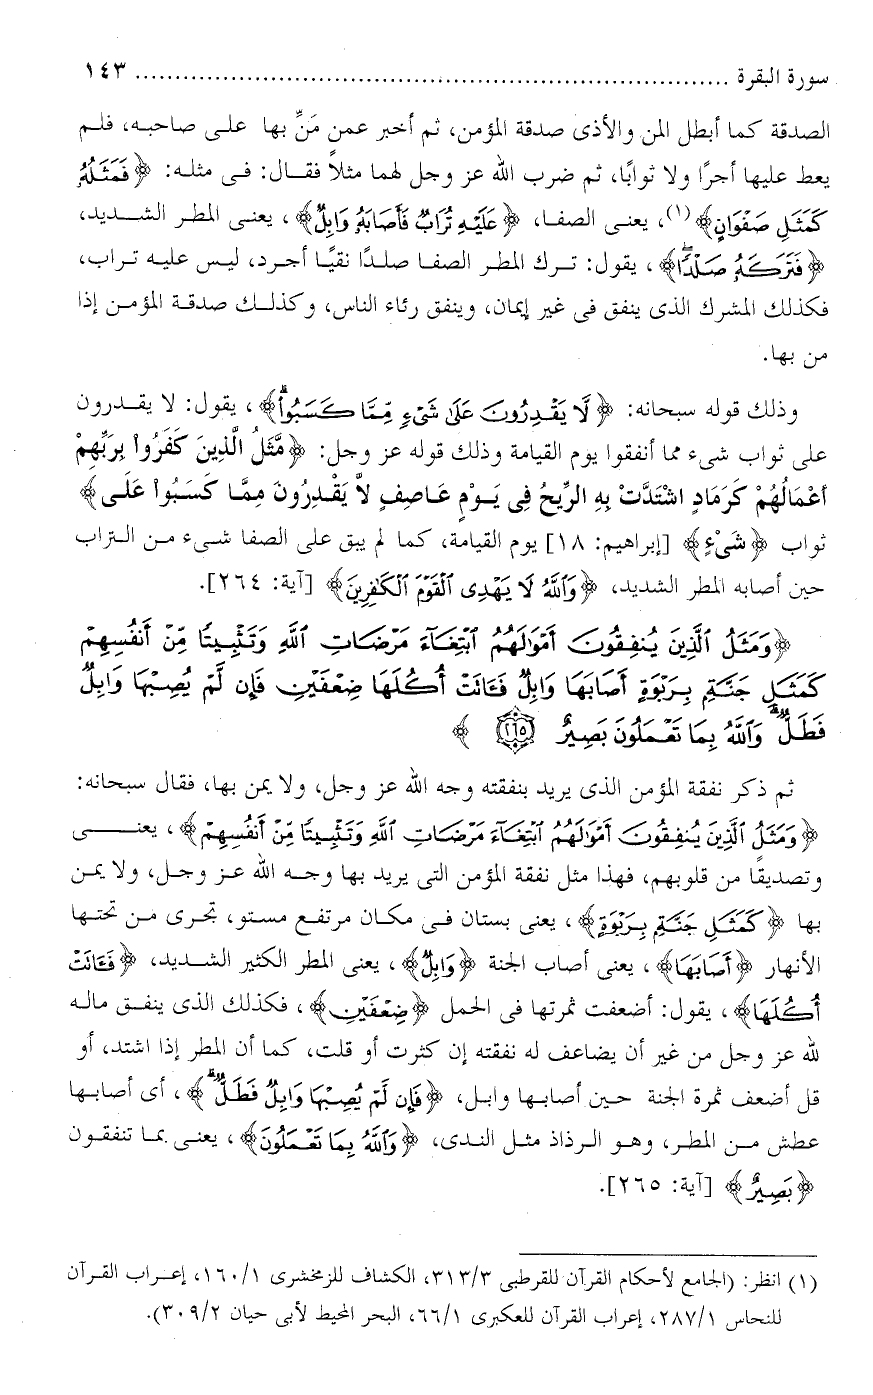 سورة البقرة ........................................................................ ١٤٣
الصدقة كما أبطل المن والأذى صدقة المؤمن، ثم أخبر عمن مَنٍّ بها على صاحبه، فلم
يعط عليها أجرًا ولا ثوابًا، ثم ضرب الله عز وجل لهما مثلاً فقال: فى مثله: ﴿فَمَثَلُهُ
كَمَثَلِ صَفْوَانٍ﴾(١)، يعنى الصفا، ﴿عَلَيْهِ تُرَابٌ فَأَصَابَهُ وَابِلٌ﴾، يعنى المطر الشديد،
﴿فَتَرَكَهُ صَلْدًا﴾، يقول: ترك المطر الصفا صلدًا نقيًا أجرد، ليس عليه تراب،
فكذلك المشرك الذى ينفق فى غير إيمان، وينفق رئاء الناس، وكذلك صدقة المؤمن إذا
من بها.
وذلك قوله سبحانه: ﴿لَّا يَقْدِرُونَ عَلَىٰ شَىْءٍ مِّمَّا كَسَبُواْ﴾، يقول: لا يقدرون
على ثواب شىء مما أنفقوا يوم القيامة وذلك قوله عز وجل: ﴿مَّثَلُ الَّذِينَ كَفَرُواْ بِرَبِّهِمْ
أَعْمَالُهُمْ كَرَمَادٍ اشْتَدَّتْ بِهِ الرِّيحُ فِى يَوْمٍ عَاصِفٍ لاَّ يَقْدِرُونَ مِمَّا كَسَبُواْ عَلَى﴾
ثواب ﴿شَىْءٍ﴾ [إبراهيم: ١٨] يوم القيامة، كما لم يبق على الصفا شىء من التراب
حين أصابه المطر الشديد، ﴿وَٱللَّهُ لَا يَهْدِى ٱلْقَوْمَ ٱلْكَٰفِرِينَ﴾ [آية: ٢٦٤].
﴿وَمَثَلُ ٱلَّذِينَ يُنفِقُونَ أَمْوَٰلَهُمُ ٱبْتِغَآءَ مَرْضَاتِ ٱللَّهِ وَتَثْبِيتًا مِّنْ أَنفُسِهِمْ
كَمَثَلِ جَنَّةٍۭ بِرَبْوَةٍ أَصَابَهَا وَابِلٌ فَـَٔاتَتْ أُكُلَهَا ضِعْفَيْنِ فَإِن لَّمْ يُصِبْهَا وَابِلٌ
فَطَلٌّ ۗ وَٱللَّهُ بِمَا تَعْمَلُونَ بَصِيرٌ ٢٦٥ ﴾
ثم ذكر نفقة المؤمن الذى يريد بنفقته وجه الله عز وجل، ولا يمن بها، فقال سبحانه:
﴿وَمَثَلُ ٱلَّذِينَ يُنفِقُونَ أَمْوَٰلَهُمُ ٱبْتِغَآءَ مَرْضَاتِ ٱللَّهِ وَتَثْبِيتًا مِّنْ أَنفُسِهِمْ﴾، يعنى
وتصديقًا من قلوبهم، فهذا مثل نفقة المؤمن التى يريد بها وجه الله عز وجل، ولا يمن
بها ﴿كَمَثَلِ جَنَّةٍۭ بِرَبْوَةٍ﴾، يعنى بستان فى مكان مرتفع مستو، تجرى من تحتها
الأنهار ﴿أَصَابَهَا﴾، يعنى أصاب الجنة ﴿وَابِلٌ﴾، يعنى المطر الكثير الشديد، ﴿فَـَٔاتَتْ
أُكُلَهَا﴾، يقول: أضعفت ثمرتها فى الحمل ﴿ضِعْفَيْنِ﴾، فكذلك الذى ينفق ماله
لله عز وجل من غير أن يضاعف له نفقته إن كثرت أو قلت، كما أن المطر إذا اشتد، أو
قل أضعف ثمرة الجنة حين أصابها وابل، ﴿فَإِن لَّمْ يُصِبْهَا وَابِلٌ فَطَلٌّ ۗ﴾، أى أصابها
عطش من المطر، وهو الرذاذ مثل الندى، ﴿وَٱللَّهُ بِمَا تَعْمَلُونَ﴾، يعنى بما تنفقون
﴿بَصِيرٌ﴾ [آية: ٢٦٥].
(١) انظر: (الجامع لأحكام القرآن للقرطبى ٣١٣/٣، الكشاف للزمخشرى ١٦٠/١، إعراب القرآن
للنحاس ٢٨٧/١، إعراب القرآن للعكبرى ٦٦/١، البحر المحيط لأبى حيان ٣٠٩/٢).